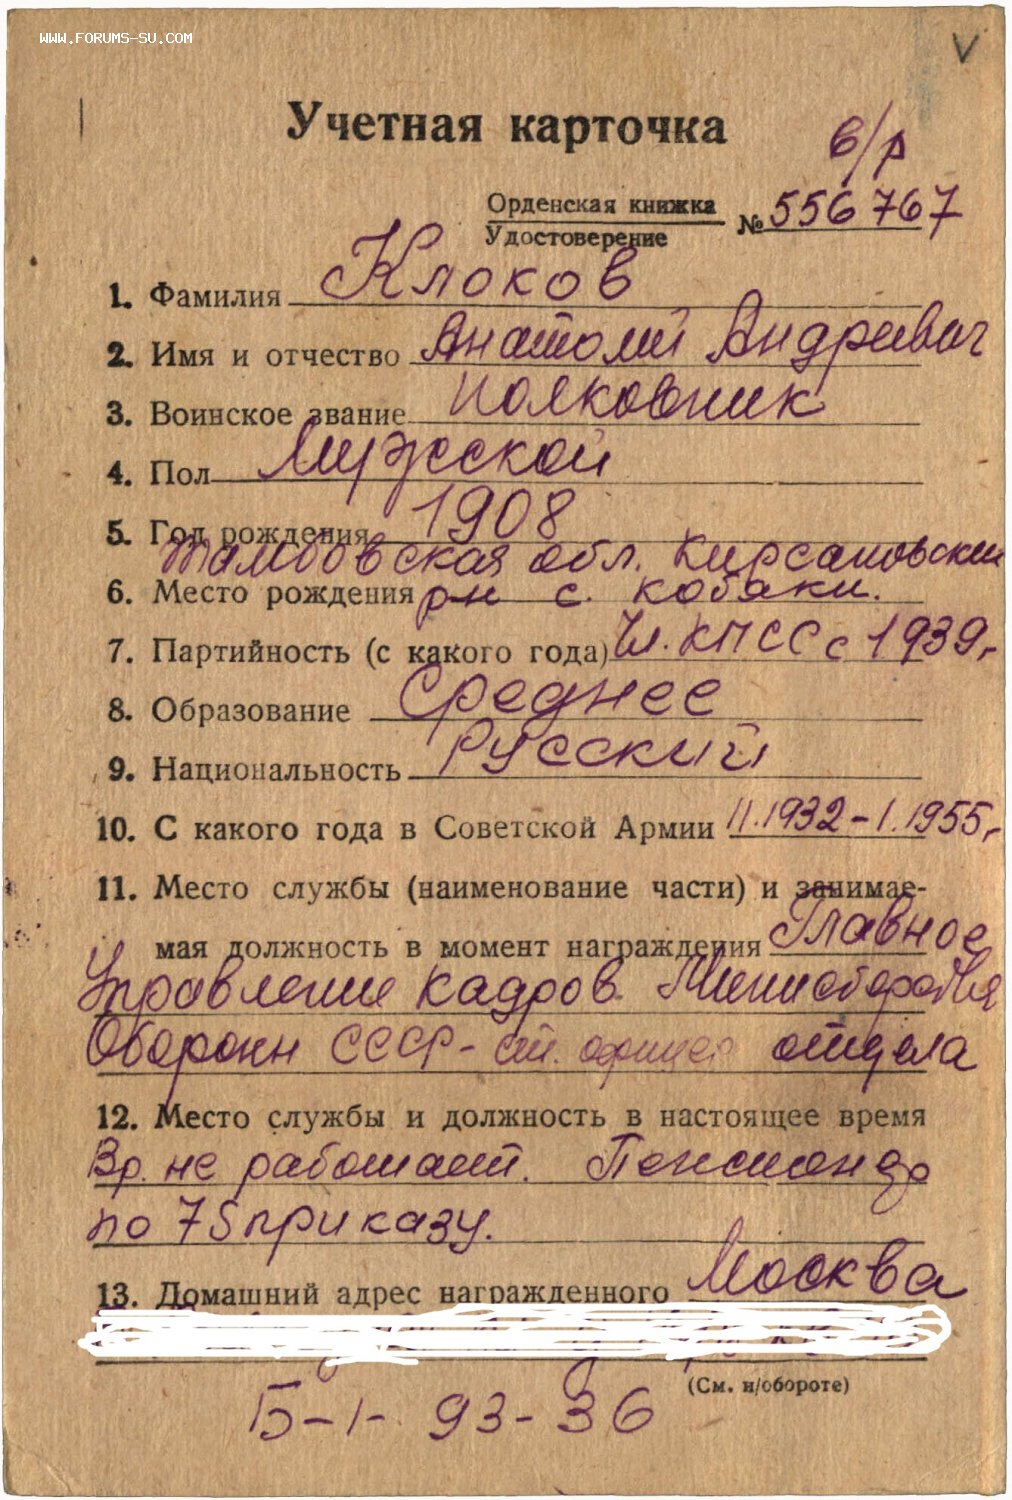 www.forums-su.com
V
Учетная карточка
б/р
Орденская книжка
Удостоверение
№ 556767
1. Фамилия Клоков
2. Имя и отчество Анатолий Андреевич
3. Воинское звание полковник
4. Пол Мужской
5. Год рождения 1908
Тамбовская обл. Кирсановский
6. Место рождения рн с. Кобяки.
7. Партийность (с какого года) Чл. КПСС с 1939г.
8. Образование Среднее
9. Национальность Русский
10. С какого года в Советской Армии 11.1932-1.1955г.
11. Место службы (наименование части) и занимае-
мая должность в момент награждения Главное
Управление кадров
Обороны СССР - ст. офицер отдела
12. Место службы и должность в настоящее время
Вр. не работает.
по 75 приказу.
13. Домашний адрес награжденного Москва
(См. н/обороте)
Б-1-93-36